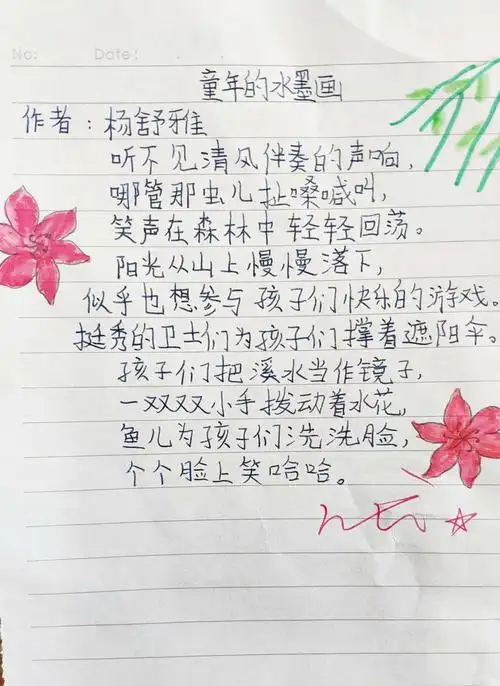 No:
Date:
童年的水墨画
作者：杨舒雅
听不见清风伴奏的声响，
哪管那虫儿扯嗓喊叫，
笑声在森林中轻轻回荡。
阳光从山上慢慢落下，
似乎也想参与孩子们快乐的游戏。
挺秀的卫士们为孩子们撑着遮阳伞。
孩子们把溪水当作镜子，
一双双双小手拨动着水花，
鱼儿为孩子们洗洗脸，
个个脸上笑哈哈。